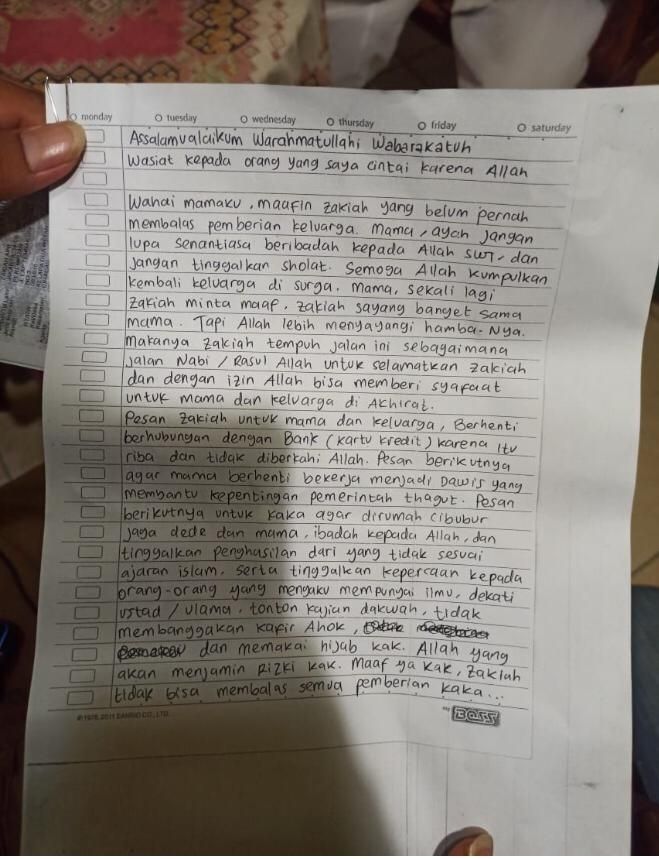 monday tuesday wednesday thursday friday saturday
Assalamualaikum Warahmatullahi Wabarakatuh
Wasiat kepada orang yang saya cintai karena Allah
Wahai mamaku, maafin zakiah yang belum pernah
membalas pemberian keluarga. Mama, ayah jangan
lupa senantiasa beribadah kepada Allah swt, dan
jangan tinggalkan sholat. Semoga Allah kumpulkan
kembali keluarga di surga. mama, sekali lagi
zakiah minta maaf. zakiah sayang banget sama
mama. Tapi Allah lebih menyayangi hamba-Nya.
makanya zakiah tempuh jalan ini sebagaimana
jalan Nabi / Rasul Allah untuk selamatkan zakiah
dan dengan izin Allah bisa memberi syafaat
untuk mama dan keluarga di Akhirat.
Pesan zakiah untuk mama dan keluarga, Berhenti
berhubungan dengan Bank (kartu kredit) karena itu
riba dan tidak diberkahi Allah. Pesan berikutnya
agar mama berhenti bekerja menjadi Dawis yang
membantu kepentingan pemerintah thagut. Pesan
berikutnya untuk kaka agar dirumah cibubur
jaga dede dan mama, ibadah kepada Allah, dan
tinggalkan penghasilan dari yang tidak sesuai
ajaran islam. serta tinggalkan kepercaan kepada
orang-orang yang mengaku mempunyai ilmu, dekati
ustad / ulama, tonton kajian dakwah, tidak
membanggakan kafir Ahok,
dan memakai hijab kak. Allah yang
akan menjamin Rizki kak. Maaf ya kak, zakiah
tidak bisa membalas semua pemberian kaka...
© 1976, 2011 SANRIO CO., LTD.
my BOSS